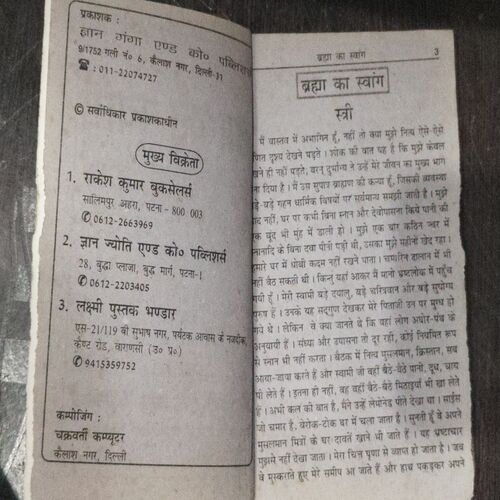 प्रकाशक :
ज्ञान गंगा एण्ड को० पब्लिशर्स
9/1752 गली नं० 6, कैलाश नगर, दिल्ली-31
☎ : 011-22074727
© सर्वाधिकार प्रकाशकाधीन
मुख्य विक्रेता
1. राकेश कुमार बुकसेलर्स
सालिमपुर अहरा, पटना - 800 003
✆ 0612-2663969
2. ज्ञान ज्योति एण्ड को० पब्लिशर्स
28, बुद्धा प्लाजा, बुद्ध मार्ग, पटना-1
✆ 0612-2203405
3. लक्ष्मी पुस्तक भण्डार
एस-21/119 बी सुभाष नगर, पर्यटक आवास के नजदीक,
कैण्ट रोड, वाराणसी (उ० प्र०)
✆ 9415359752
कम्पोजिंग :
चक्रवर्ती कम्प्यूटर
कैलाश नगर, दिल्ली
ब्रह्मा का स्वांग 3
ब्रह्मा का स्वांग
स्त्री
मैं वास्तव में अभागिन हूं, नहीं तो क्या मुझे नित्य ऐसे-ऐसे
दृश्य देखने पड़ते । शोक की बात यह है कि मुझे केवल
ही नहीं पड़ते, वरन् दुर्भाग्य ने उन्हें मेरे जीवन का मुख्य भाग
दिया है । मैं उस सुपात्र ब्राह्मण की कन्या हूं, जिसकी व्यवस्था
बड़े-बड़े गहन धार्मिक विषयों पर सर्वमान्य समझी जाती है । मुझे
नहीं, घर पर कभी बिना स्नान और देवोपासना किये पानी की
बूंद भी मुंह में डाली हो । मुझे एक बार कठिन ज्वर में
स्नानादि के बिना दवा पीनी पड़ी थी, उसका मुझे महीनों खेद रहा ।
हमारे घर में धोबी कदम नहीं रखने पाता । चमारिन दालान में भी
नहीं बैठ सकती थी । किन्तु यहां आकर मैं मानो भ्रष्टलोक में पहुंच
गयी हूं । मेरी स्वामी बड़े दयालु, बड़े चरित्रवान और बड़े सुयोग्य
पुरुष हैं । उनके यह सद्गुण देखकर मेरे पिताजी उन पर मुग्ध हो
गये थे । लेकिन वे क्या जानते थे कि यहां लोग अघोर-पंथ के
अनुयायी हैं । संध्या और उपासना तो दूर रही, कोई नियमित रूप
से स्नान भी नहीं करता । बैठक में नित्य मुसलमान, क्रिस्तान, सब
आया-जाया करते हैं और स्वामी जी वहीं बैठे-बैठे पानी, दूध, चाय
पी लेते हैं । इतना ही नहीं, वह वहीं बैठे-बैठे मिठाइयां भी खा लेते
हैं । अभी कल की बात है, मैंने उन्हें लेमोनेड पीते देखा था । साईस
जो चमार है, बेरोक-टोक घर में चला जाता है । सुनती हूं वे अपने
मुसलमान मित्रों के घर दावतें खाने भी जाते हैं । यह भ्रष्टाचार
मुझसे नहीं देखा जाता । मेरा चित्त घृणा से व्याप्त हो जाता है । जब
वे मुस्कराते हुए मेरे समीप आ जाते हैं और हाथ पकड़कर अपने